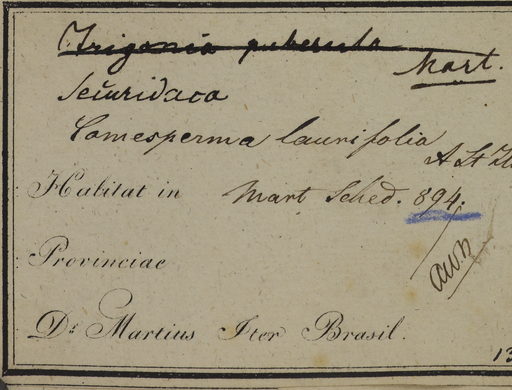 Trigonia puberula
Mart.
Securidaca
Comesperma laurifolia
A St
Habitat in Mart Sched. 894.
Provinciae
Dr. Martius Iter Brasil.
13